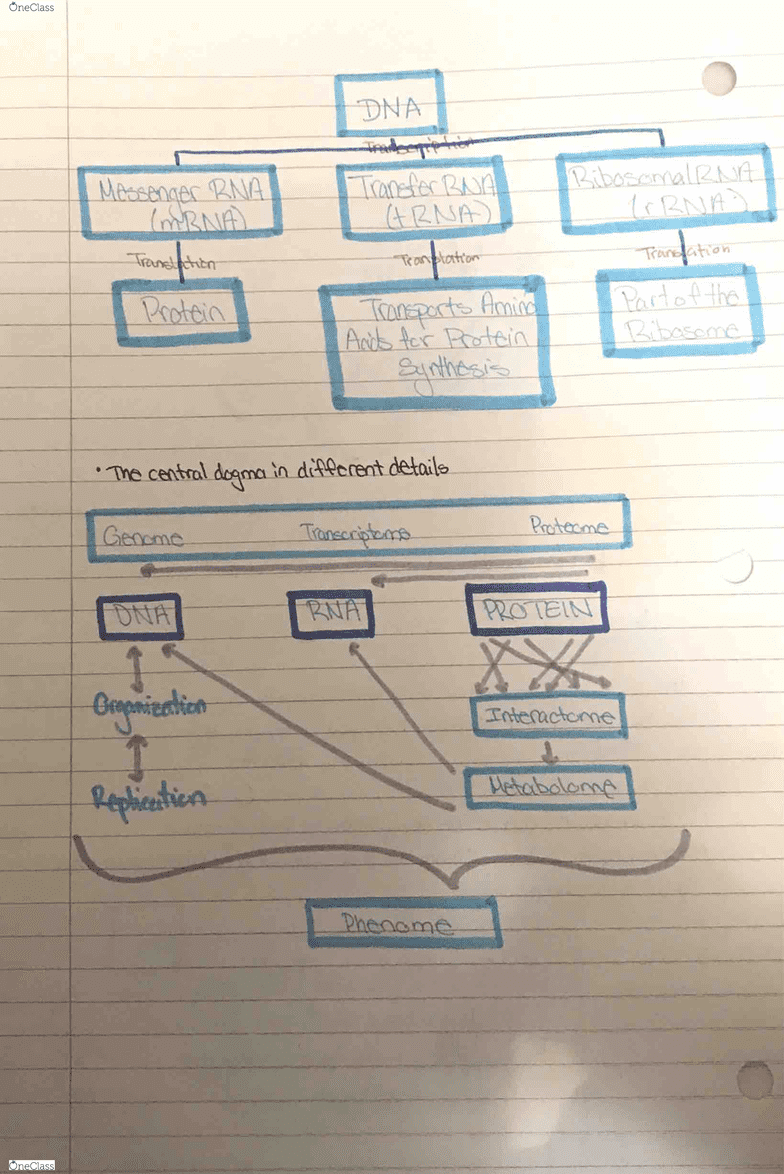 OneClass
DNA
Transcription
Messenger RNA
(mRNA)
Transfer RNA
(tRNA)
Ribosomal RNA
(rRNA)
Translation
Translation
Translation
Protein
Transports Amino
Acids for Protein
Synthesis
Part of the
Ribosome
• The central dogma in different details
Genome Transcriptome Proteome
DNA RNA PROTEIN
Organization
Interactome
Replication
Metabolome
Phenome
OneClass